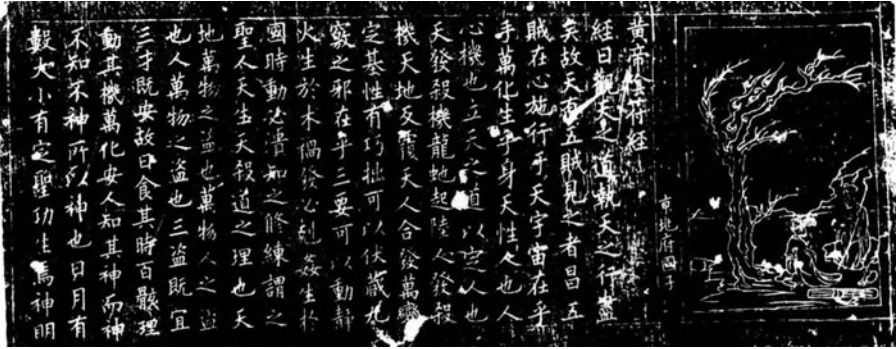 京兆府國子
黄帝陰符經
經曰觀天之道執天之行盡
矣故天有五賊見之者昌五
賊在心施行乎天宇宙在乎
手萬化生乎身天性人也人
心機也立天之道以定人也
天發殺機龍虵起陸人發殺
機天地反覆天人合發萬變
定基性有巧拙可以伏藏九
竅之邪在乎三要可以動靜
火生於木禍發必剋姦生於
國時動必潰知之修練謂之
聖人天生天殺道之理也天
地萬物之盜也萬物人之盜
也人萬物之盜也三盜既宜
三才既安故曰食其時百骸理
動其機萬化安人知其神而神
不知不神所以神也日月有
數大小有定聖功生焉神明